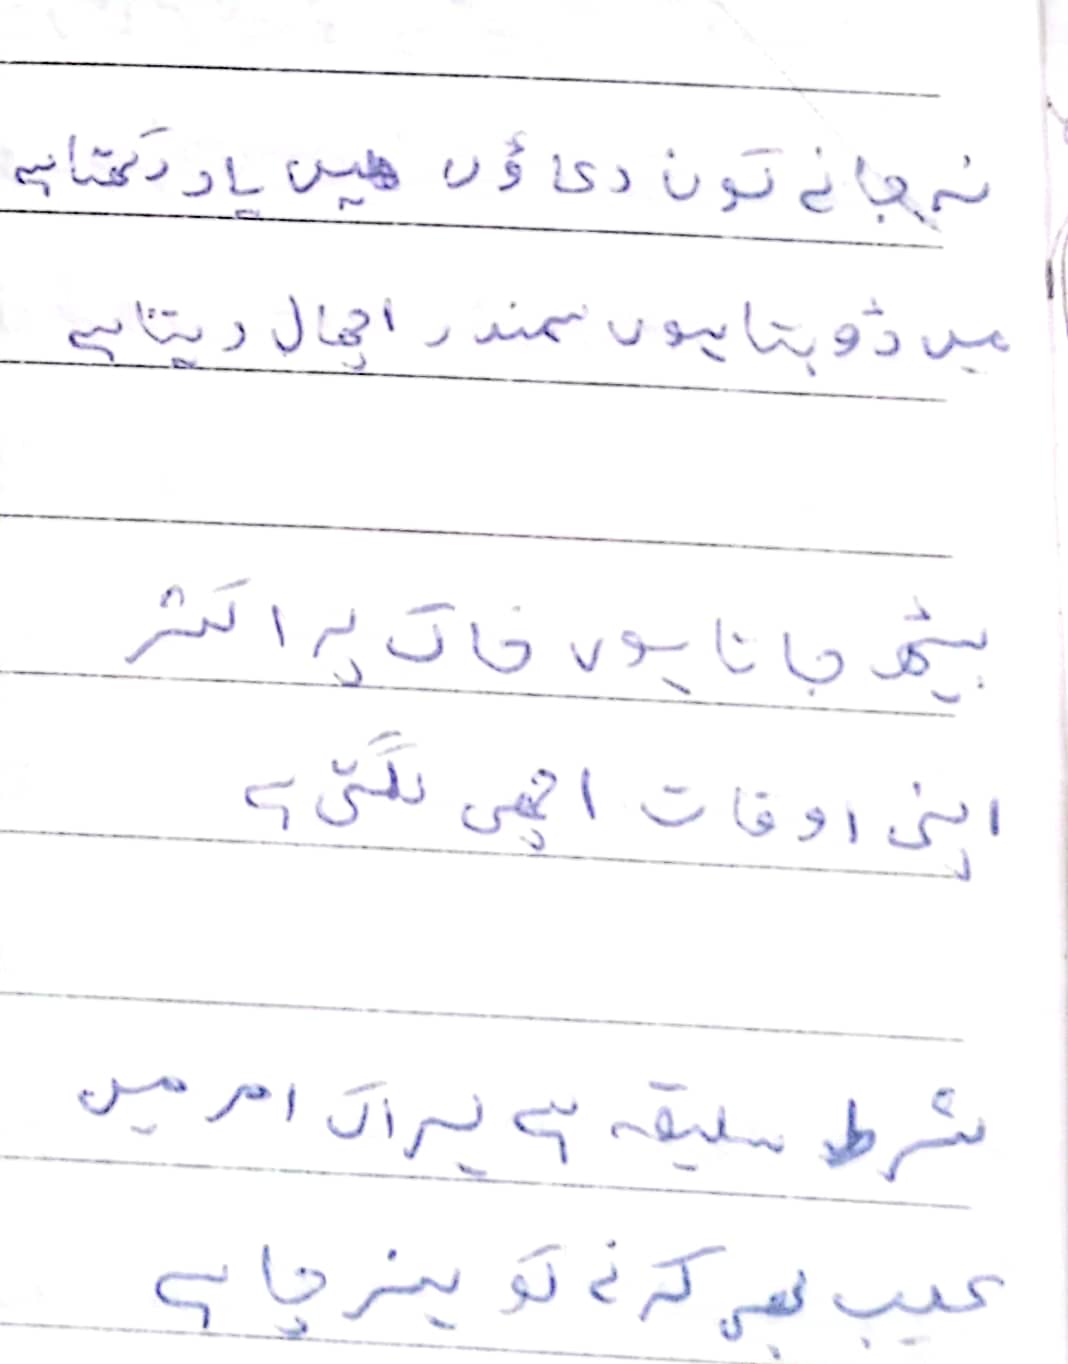 نہ جانے کون دعاؤں میں یاد رکھتا ہے
میں ڈوبتا ہوں سمندر اچھال دیتا ہے
بیٹھ جاتا ہوں خاک پہ اکثر
اپنی اوقات اچھی لگتی ہے
شرط سلیقہ ہے ہر اک امر میں
عیب بھی کرنے کو ہنر چاہے